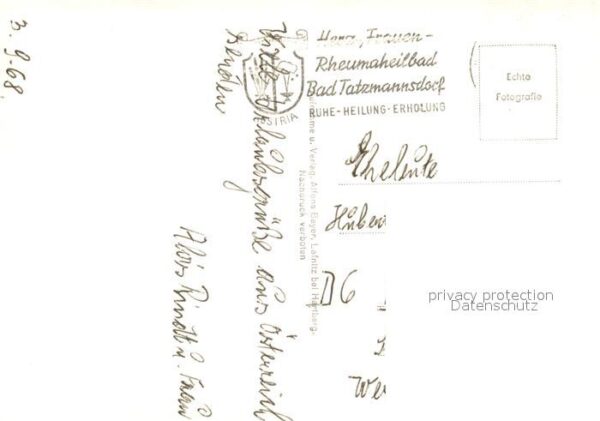 3.9.68
Viele Urlaubsgrüße aus Österreich
senden
Alois u. Frau
Aufnahme u. Verlag: Alfons Bayer, Lafnitz bei Hartberg-
Nachdruck verboten
Herz, Frauen-
Rheumaheilbad
Bad Tatzmannsdorf
RUHE-HEILUNG-ERHOLUNG
Echte
Fotografie
Eheleute
D6
privacy protection
Datenschutz